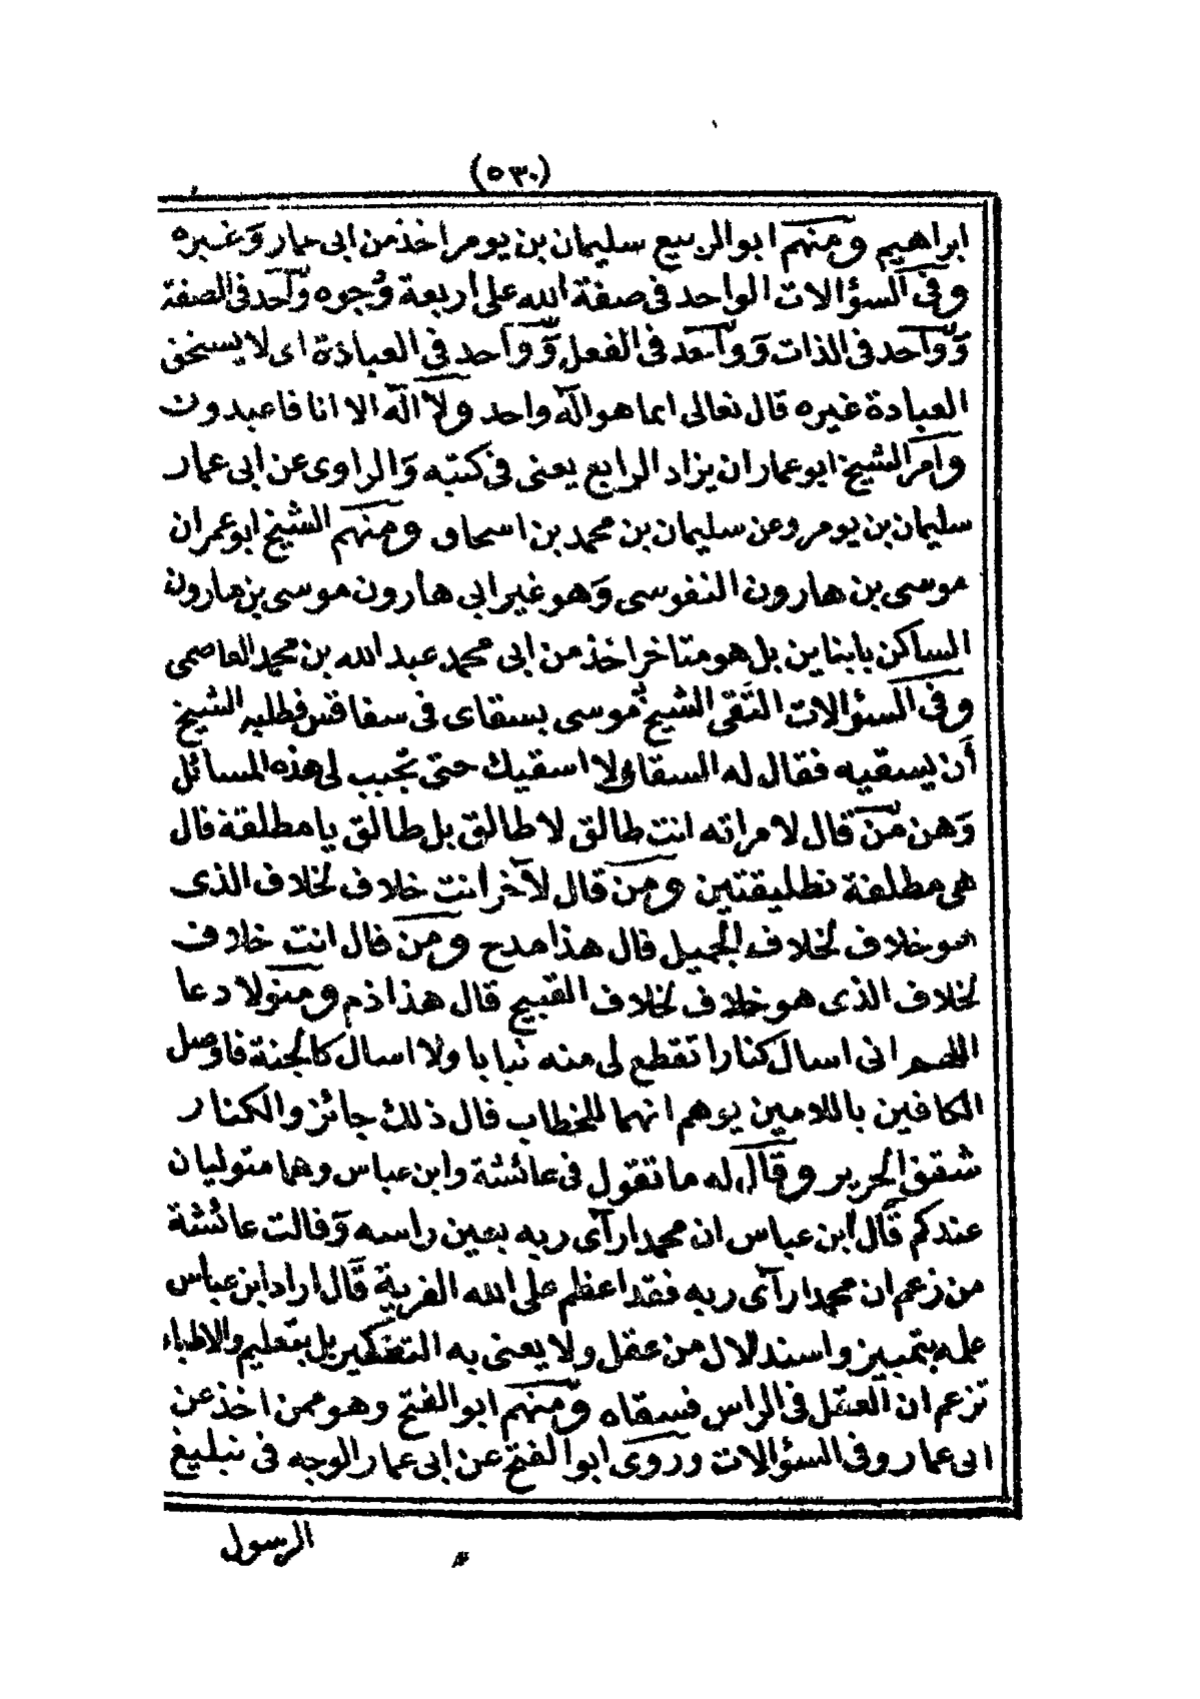 (٥٣٠)
ابراهيم ومنهم ابو الربيع سليمان بن يومر اخذ من ابى عمار وَغيره
وفى السؤالات الواحد فى صفة الله على اربعة وُجوه وَّاحد فى الصفة
وَّوَاحد فى الذات وَوَّاحد فى الفعل وَّوَاحد فى العبادة اى لا يستحق
العبادة غيره قال تعالى انما هو الٓه واحد ولآ الٓه الا انا فاعبدون
وامر الشيخ ابو عمار ان يزاد الرابع يعنى فى كتبه وَالراوى عن ابى عمار
سليمان بن يومر وعن سليمان بن محمد بن اسحاق ومنهم الشيخ ابو عمران
موسى بن هارون النفوسى وَهو غير ابى هارون موسى بن هارون
الساكن بابناين بل هو متاخر اخذ من ابى محمد عبد الله بن محمد العاصمى
وفى السؤالات التَقى الشيخ موسى بسقاى فى سفاقس فطلبه الشيخ
أن يسقيه فقال له السقاؤ لا اسقيك حتى تجيب لى هذه المسائل
وَهن من قال لامراته انت طالق لا طالق بل طالق يا مطلقة قال
هى مطلقة تطليقتين ومن قال لآخر انت خلاف لخلاف الذى
هو خلاف لخلاف الجميل قال هذا مدح ومن قال انت خلاف
لخلاف الذى هو خلاف لخلاف القبيح قال هذا ذم ومتولا دعا
اللهم انى اسالك نارا تقطع لى منه ثيابا ولا اسالك الجنة فاوصل
الكافين باللامين يوهم انهما للخطاب قال ذلك جائز والكنار
شقق الحرير وقال له ما تقول فى عائشة وابن عباس وهما متوليان
عندكم قال ابن عباس ان محمدا رآى ربه بعين راسه وَقالت عائشة
من زعم ان محمدا رآى ربه فقد اعظم على الله الفرية قَال اراد ابن عباس
علمه بتمييز واستدلال من عقل ولا يعنى به التفكير بل بتعليم والاطباء
تزعم ان العقل فى الراس فسقاه ومنهم ابو الفتح وهو ممن اخذ عن
ابى عمار وفى السؤالات وروى ابو الفتح عن ابى عمار الوجه فى تبليغ
الرسول